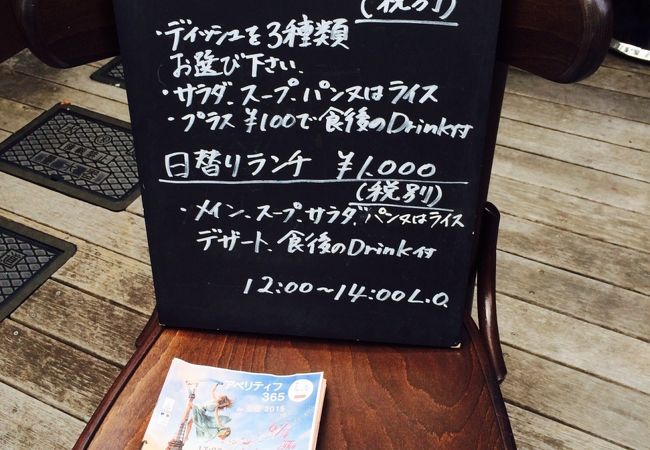 (税別)
・ディッシュを3種類
お選び下さい。
・サラダ、スープ、パン又はライス
・プラス ¥100で食後のDrink付
日替りランチ ¥1,000
(税別)
・メイン、スープ、サラダ、パン又はライス
デザート、食後のDrink付
12:00〜14:00 L.O.
アペリティフ
365
2015